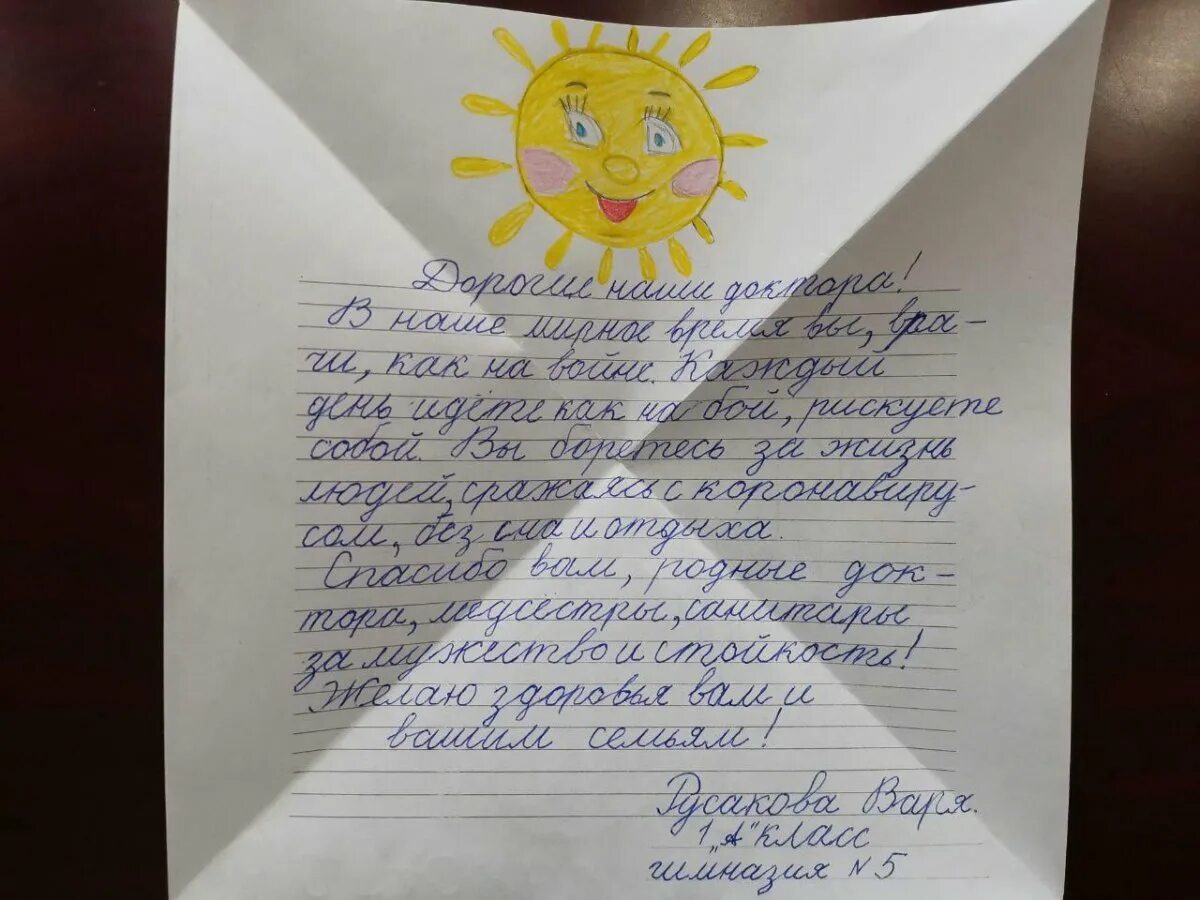 Дорогие наши доктора!
В наше мирное время вы, вра-
чи, как на войне. Каждый
день идёте как на бой, рискуете
собой. Вы боретесь за жизнь
людей, сражаясь с коронавиру-
сом, без сна и отдыха.
Спасибо вам, родные док-
тора, медсестры, санитары
за мужество и стойкость!
Желаю здоровья вам и
вашим семьям!
Русакова Варя.
1 "А" класс
гимназия № 5